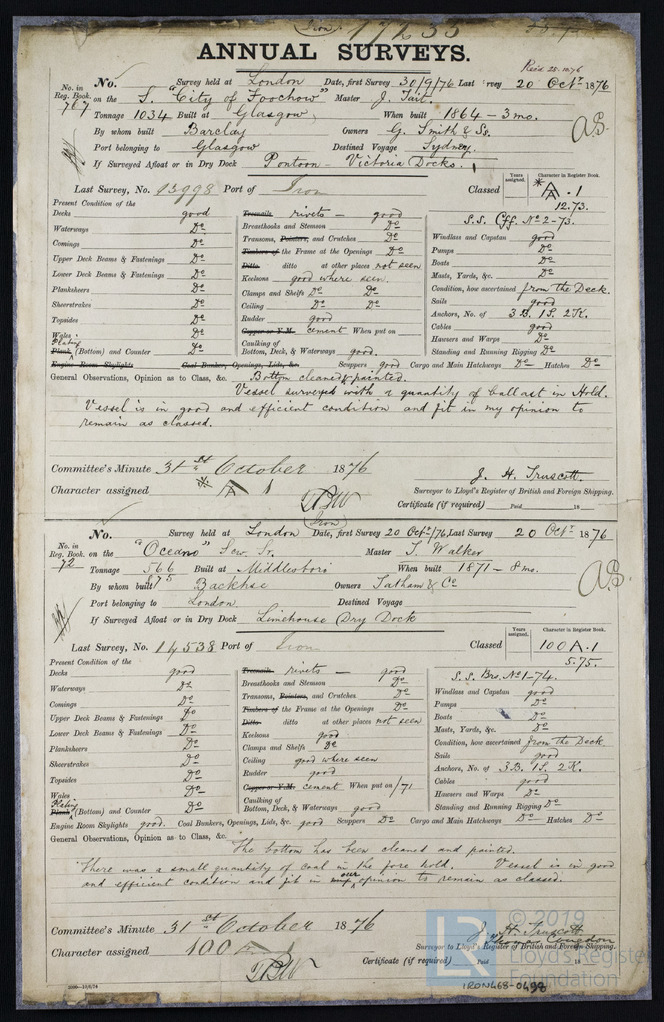 (Iron) 17233
ANNUAL SURVEYS.
Rec'd 25.10.76
No. Survey held at London Date, first Survey 30/9/76 Last Survey 20 Octr 1876
No. in Reg. Book. 767 on the S. "City of Foochow" Master J. Tait.
Tonnage 1034 Built at Glasgow When built 1864 - 3mo.
By whom built Barclay Owners G. Smith & Ss.
Port belonging to Glasgow Destined Voyage Sydney.
If Surveyed Afloat or in Dry Dock Pontoon - Victoria Docks.
Last Survey, No. 13998 Port of Iron Classed Years assigned. Character in Register Book. A.1
12.73.
Present Condition of the
Decks good Treenails rivets - good S.S. Cff. No 2-73.
Waterways Do Breasthooks and Stemson Do Windlass and Capstan good
Comings Do Transoms, Pointers, and Crutches Do Pumps Do
Upper Deck Beams & Fastenings Do Timbers of the Frame at the Openings Do Boats Do
Lower Deck Beams & Fastenings Do Ditto ditto at other places not seen Masts, Yards, &c. Do
Planksheers Do Keelsons good where seen. Condition, how ascertained from the Deck.
Sheerstrakes Do Clamps and Shelfs Do Do Sails good
Topsides Do Ceiling Do Do Anchors, No. of 3B. 1S. 2K.
Wales Do Rudder good Cables good
Plating Plank (Bottom) and Counter Do Copper or Y.M. cement When put on Hawsers and Warps Do
Caulking of Bottom, Deck, & Waterways good. Standing and Running Rigging Do
Engine Room Skylights Coal Bunker, Openings, Lids, &c. Scuppers good Cargo and Main Hatchways Do Hatches Do
General Observations, Opinion as to Class, &c. Bottom cleaned & painted.
Vessel surveyed with a quantity of ballast in Hold.
Vessel is in good and efficient condition and fit in my opinion to
remain as classed.
Committee's Minute 31st October 1876
Character assigned A 1
J. H. Truscott.
Surveyor to Lloyd's Register of British and Foreign Shipping.
Certificate (if required) Paid 18
(Iron)
No. Survey held at London Date, first Survey 20 Octr/76, Last Survey 20 Octr 1876
No. in Reg. Book. 72 on the "Oceano" Scw. Sr. Master T. Walker
Tonnage 566 Built at Middlesboro When built 1871 - 8mo.
875
By whom built Backhse Owners Tatham & Co
Port belonging to London Destined Voyage
If Surveyed Afloat or in Dry Dock Limehouse Dry Dock
Last Survey, No. 14538 Port of Iron Classed Years assigned. Character in Register Book. 100 A.1
5.75.
Present Condition of the
Decks good Treenails rivets - good S.S. Brs. No 1-74.
Waterways Do Breasthooks and Stemson Do Windlass and Capstan good
Comings Do Transoms, Pointers, and Crutches Do Pumps Do
Upper Deck Beams & Fastenings Do Timbers of the Frame at the Openings Do Boats Do
Lower Deck Beams & Fastenings Do Ditto ditto at other places not seen Masts, Yards, &c. Do
Planksheers Do Keelsons good Condition, how ascertained from the Deck
Sheerstrakes Do Clamps and Shelfs Do Sails good
Topsides Do Ceiling good where seen Anchors, No. of 3B. 1S. 2K.
Wales Do Rudder good Cables good
Plating Plank (Bottom) and Counter Do Copper or Y.M. cement When put on /71 Hawsers and Warps Do
Caulking of Bottom, Deck, & Waterways good Standing and Running Rigging Do
Engine Room Skylights good. Coal Bunkers, Openings, Lids, &c. good Scuppers Do Cargo and Main Hatchways Do Hatches Do
General Observations, Opinion as to Class, &c. The bottom has been cleaned and painted.
There was a small quantity of coal in the fore hold. Vessel is in good
and efficient condition and fit in our opinion to remain as classed.
Committee's Minute 31st October 1876
Character assigned 100 A 1
J. H. Truscott
Surveyor to Lloyd's Register of British and Foreign Shipping.
Certificate (if required) Paid 18
© 2019
Lloyd's Register
Foundation
LR
IRON468-0498